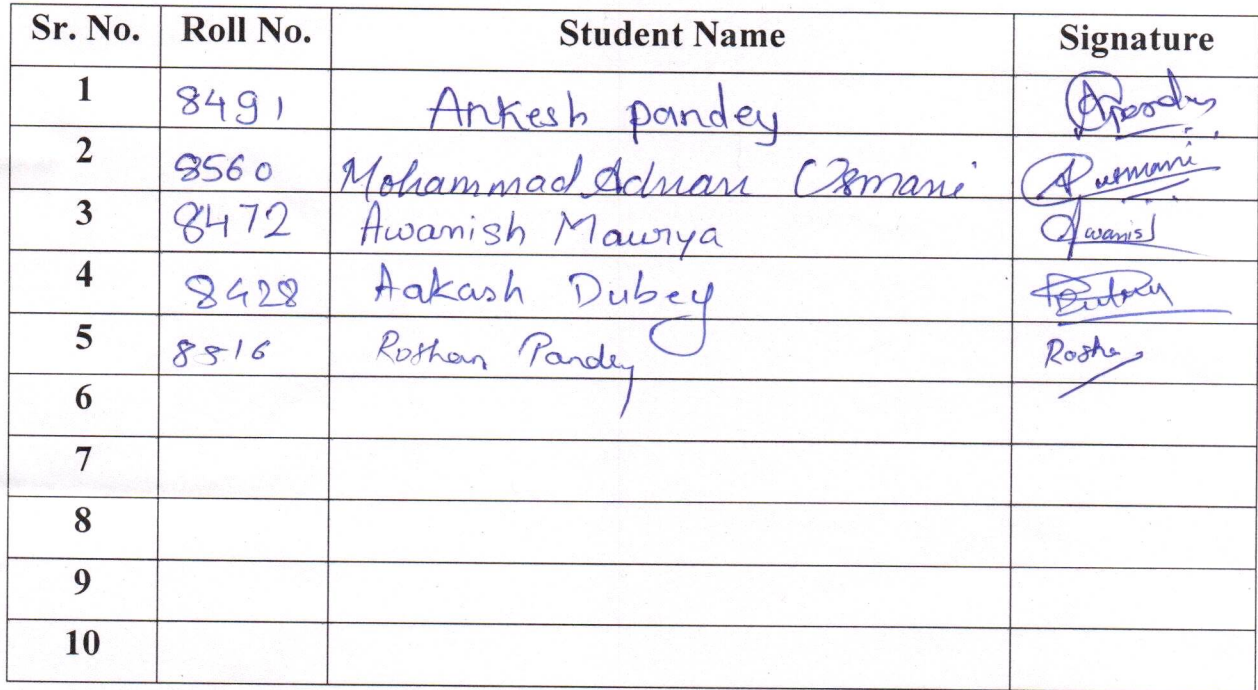 Sr. No. Roll No. Student Name Signature
1 8491 Ankesh pandey
2 8560 Mohammad Adnan Osmani
3 8472 Awanish Maurya Awanish
4 8428 Aakash Dubey
5 8516 Roshan Pandey Rosha
6
7
8
9
10